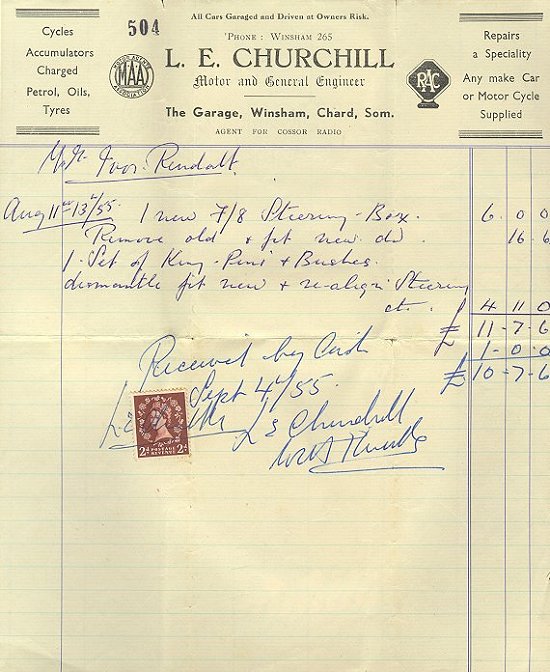 504
All Cars Garaged and Driven at Owners Risk.
Cycles
Accumulators
Charged
Petrol, Oils,
Tyres
MOTOR AGENTS
MAA
ASSOCIATION
'PHONE : WINSHAM 265
L. E. CHURCHILL
Motor and General Engineer
The Garage, Winsham, Chard, Som.
AGENT FOR COSSOR RADIO
RAC
Repairs
a Speciality
Any make Car
or Motor Cycle
Supplied
Mr Ivor Rendall
Aug 11th 13th/55. 1 new 7/8 Steering-Box. 6 0 0
Remove old & fit new do. 16 6
1. Set of King-Pins & Bushes.
dismantle fit new & re-align Steering
etc. £ 4 11 0
£ 11-7-6
1-0-0
£ 10-7-6
Received by Cash
Sept 4th/55.
L E Churchill
With Thanks
2d POSTAGE REVENUE 2d